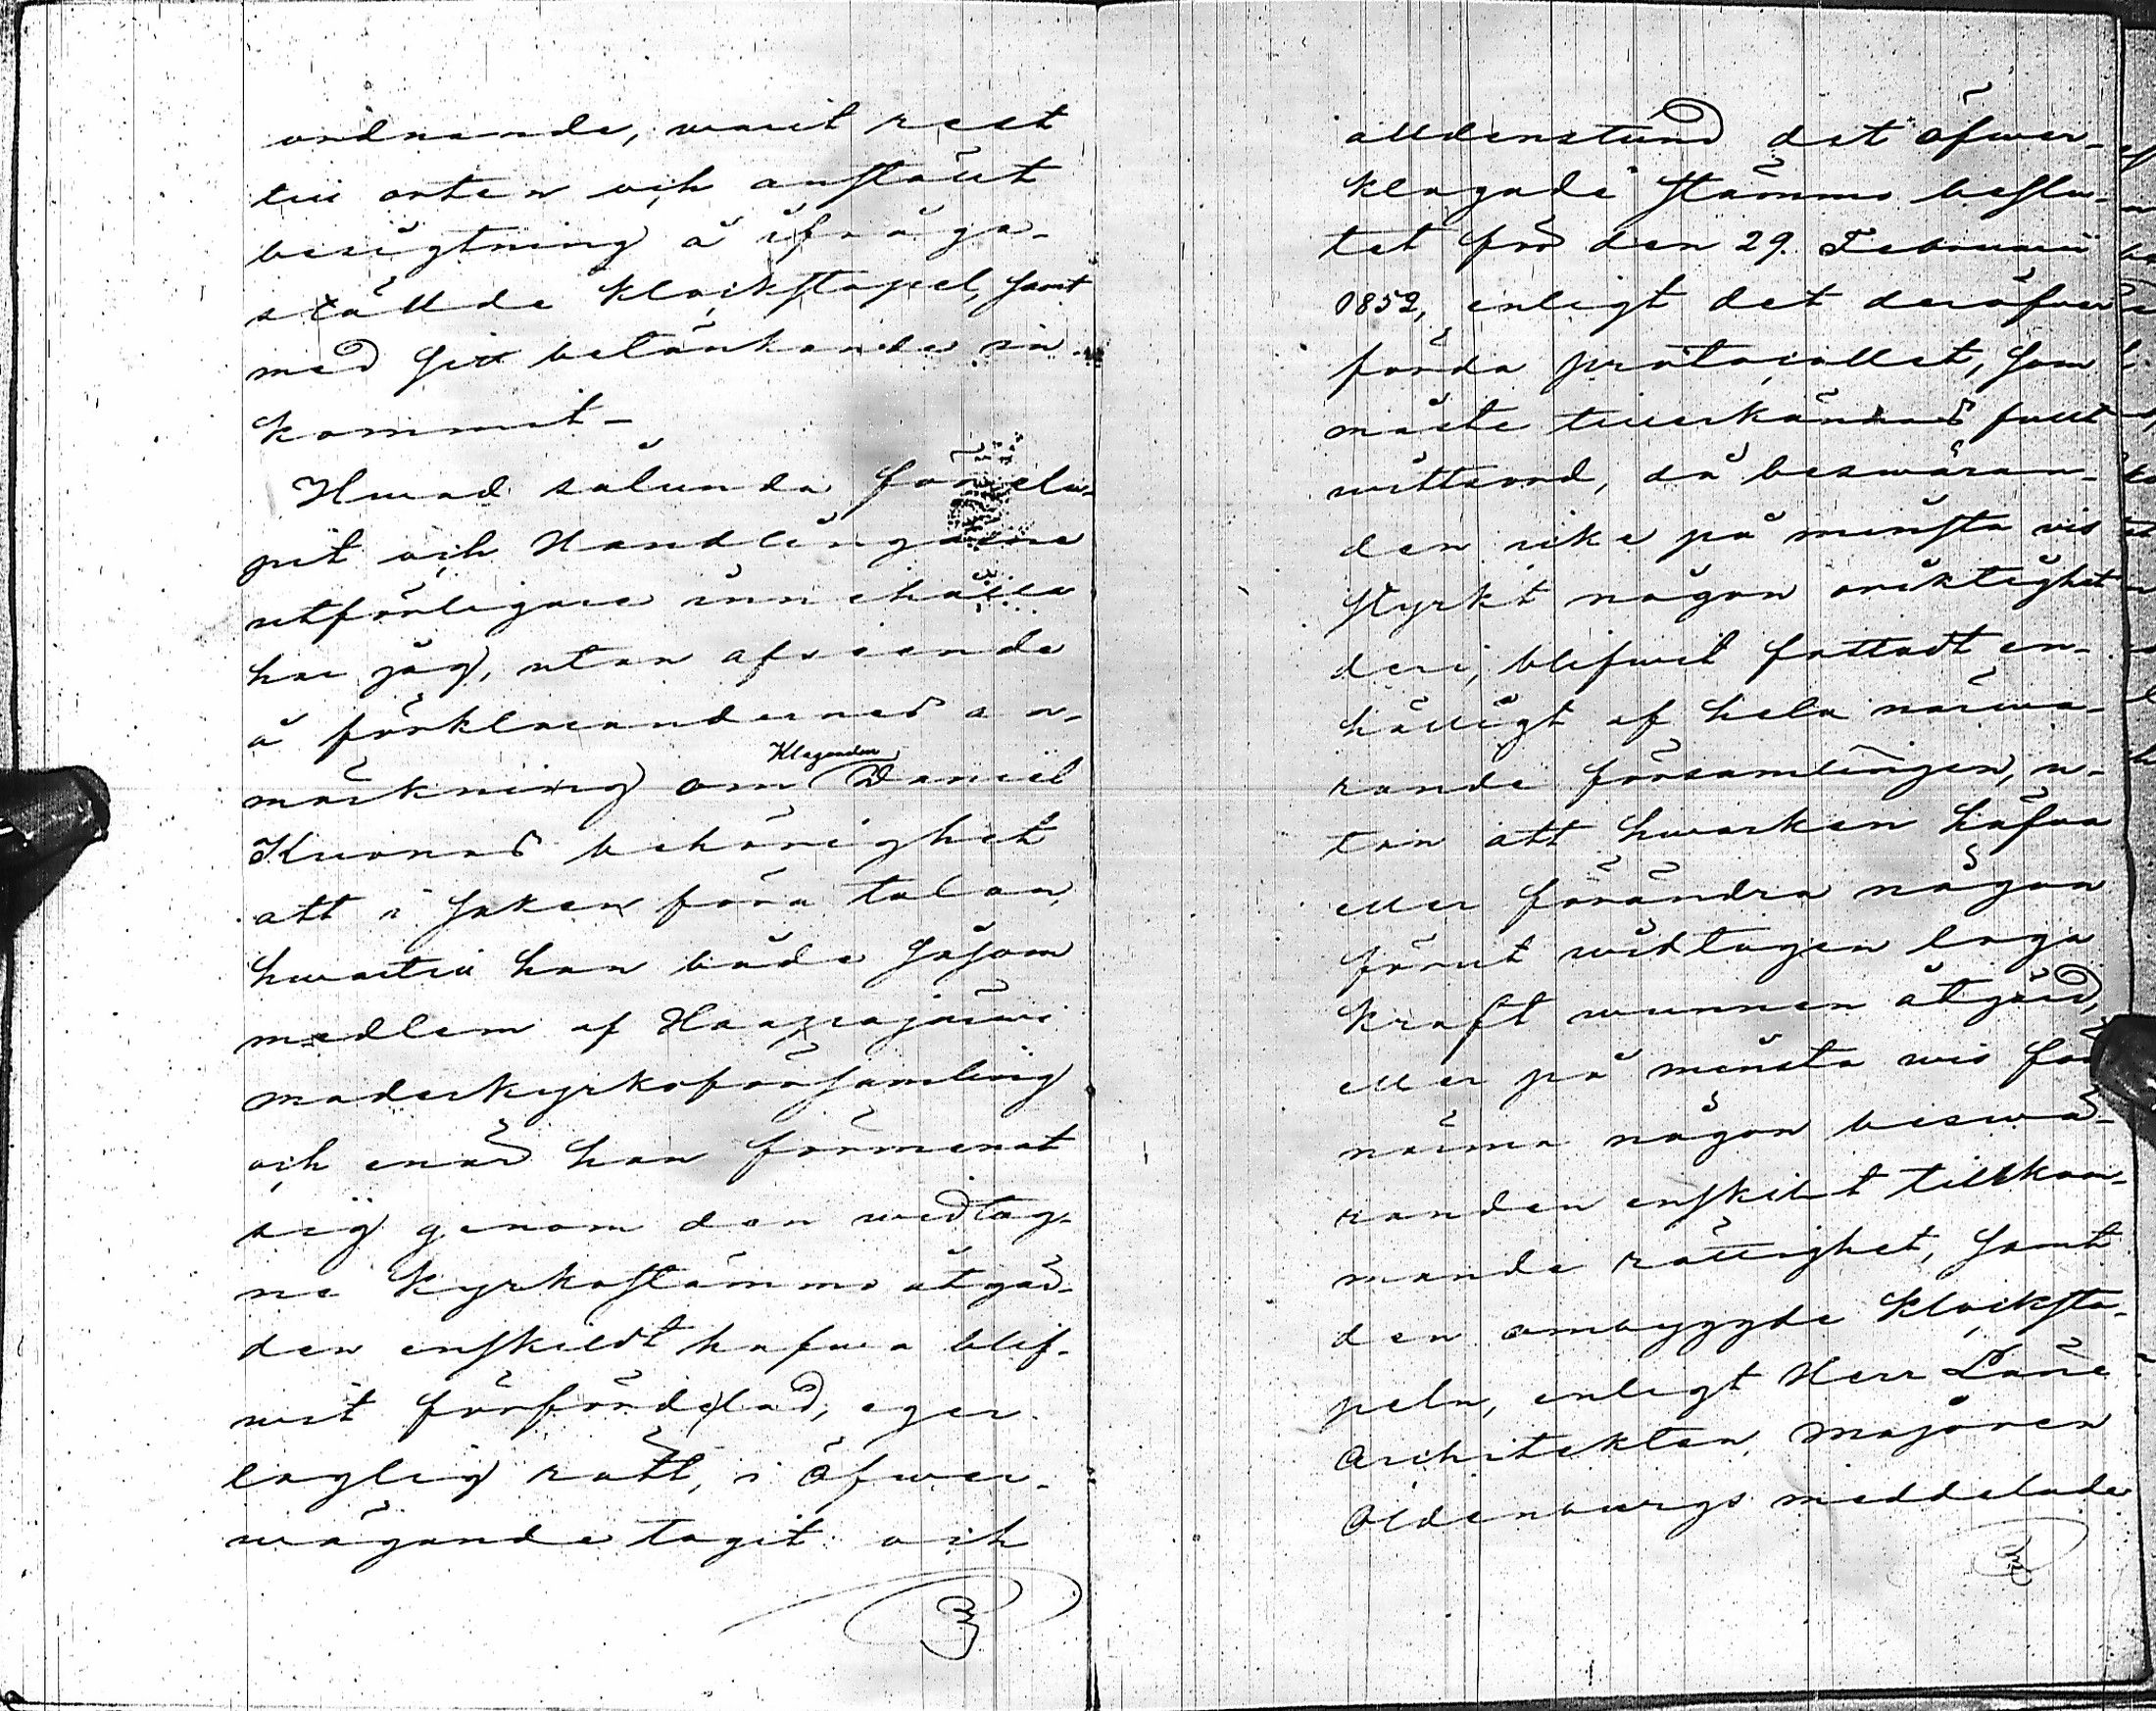 ordnande, warit rest
till orten och anstält
besigtning å ifråga-
ställde klockstapel, samt
med sitt betänkande in-
kommit –
Hwad sålunda förelu-
pit och Handlingarne
utförligare innehålla
har jag, utan afseende
å förklarandernes an-
märkning om Klaganden Daniel
Kuonas behörighet
att i saken föra talan,
hwartill han både såsom
medlem af Haapajärwi
moderkyrkoförsamling
och enär han förmenat
sig genom den widtag-
ne kyrkostämmo åtgär-
den enskildt hafwa blif-
wit förfördelad, eger
laglig rätt, i öfwer-
wägande tagit och
alldenstund det öfwer-
klagade stämmo beslu-
tet för den 29. Februarii
1852, enligt det deröfwer
förda protocollet, som
måste tillerkännas fullt
wittsord, då beswäran-
den icke på minsta vis
styrkt någon oriktighet
deri, blifwit fattadt en-
hälligt af hela närwa-
rande församlingen, u-
tan att hwarken häfwa
eller förändra någon
förut widtagen laga
kraft wunnen åtgärd,
eller på minsta wis för
närma någon beswä-
randen enskilt tillkom-
mande rättighet, samt
den ombyggde klocksta-
peln, enligt Herr Läne
Architekten, Majoren
Oldenburgs meddelade